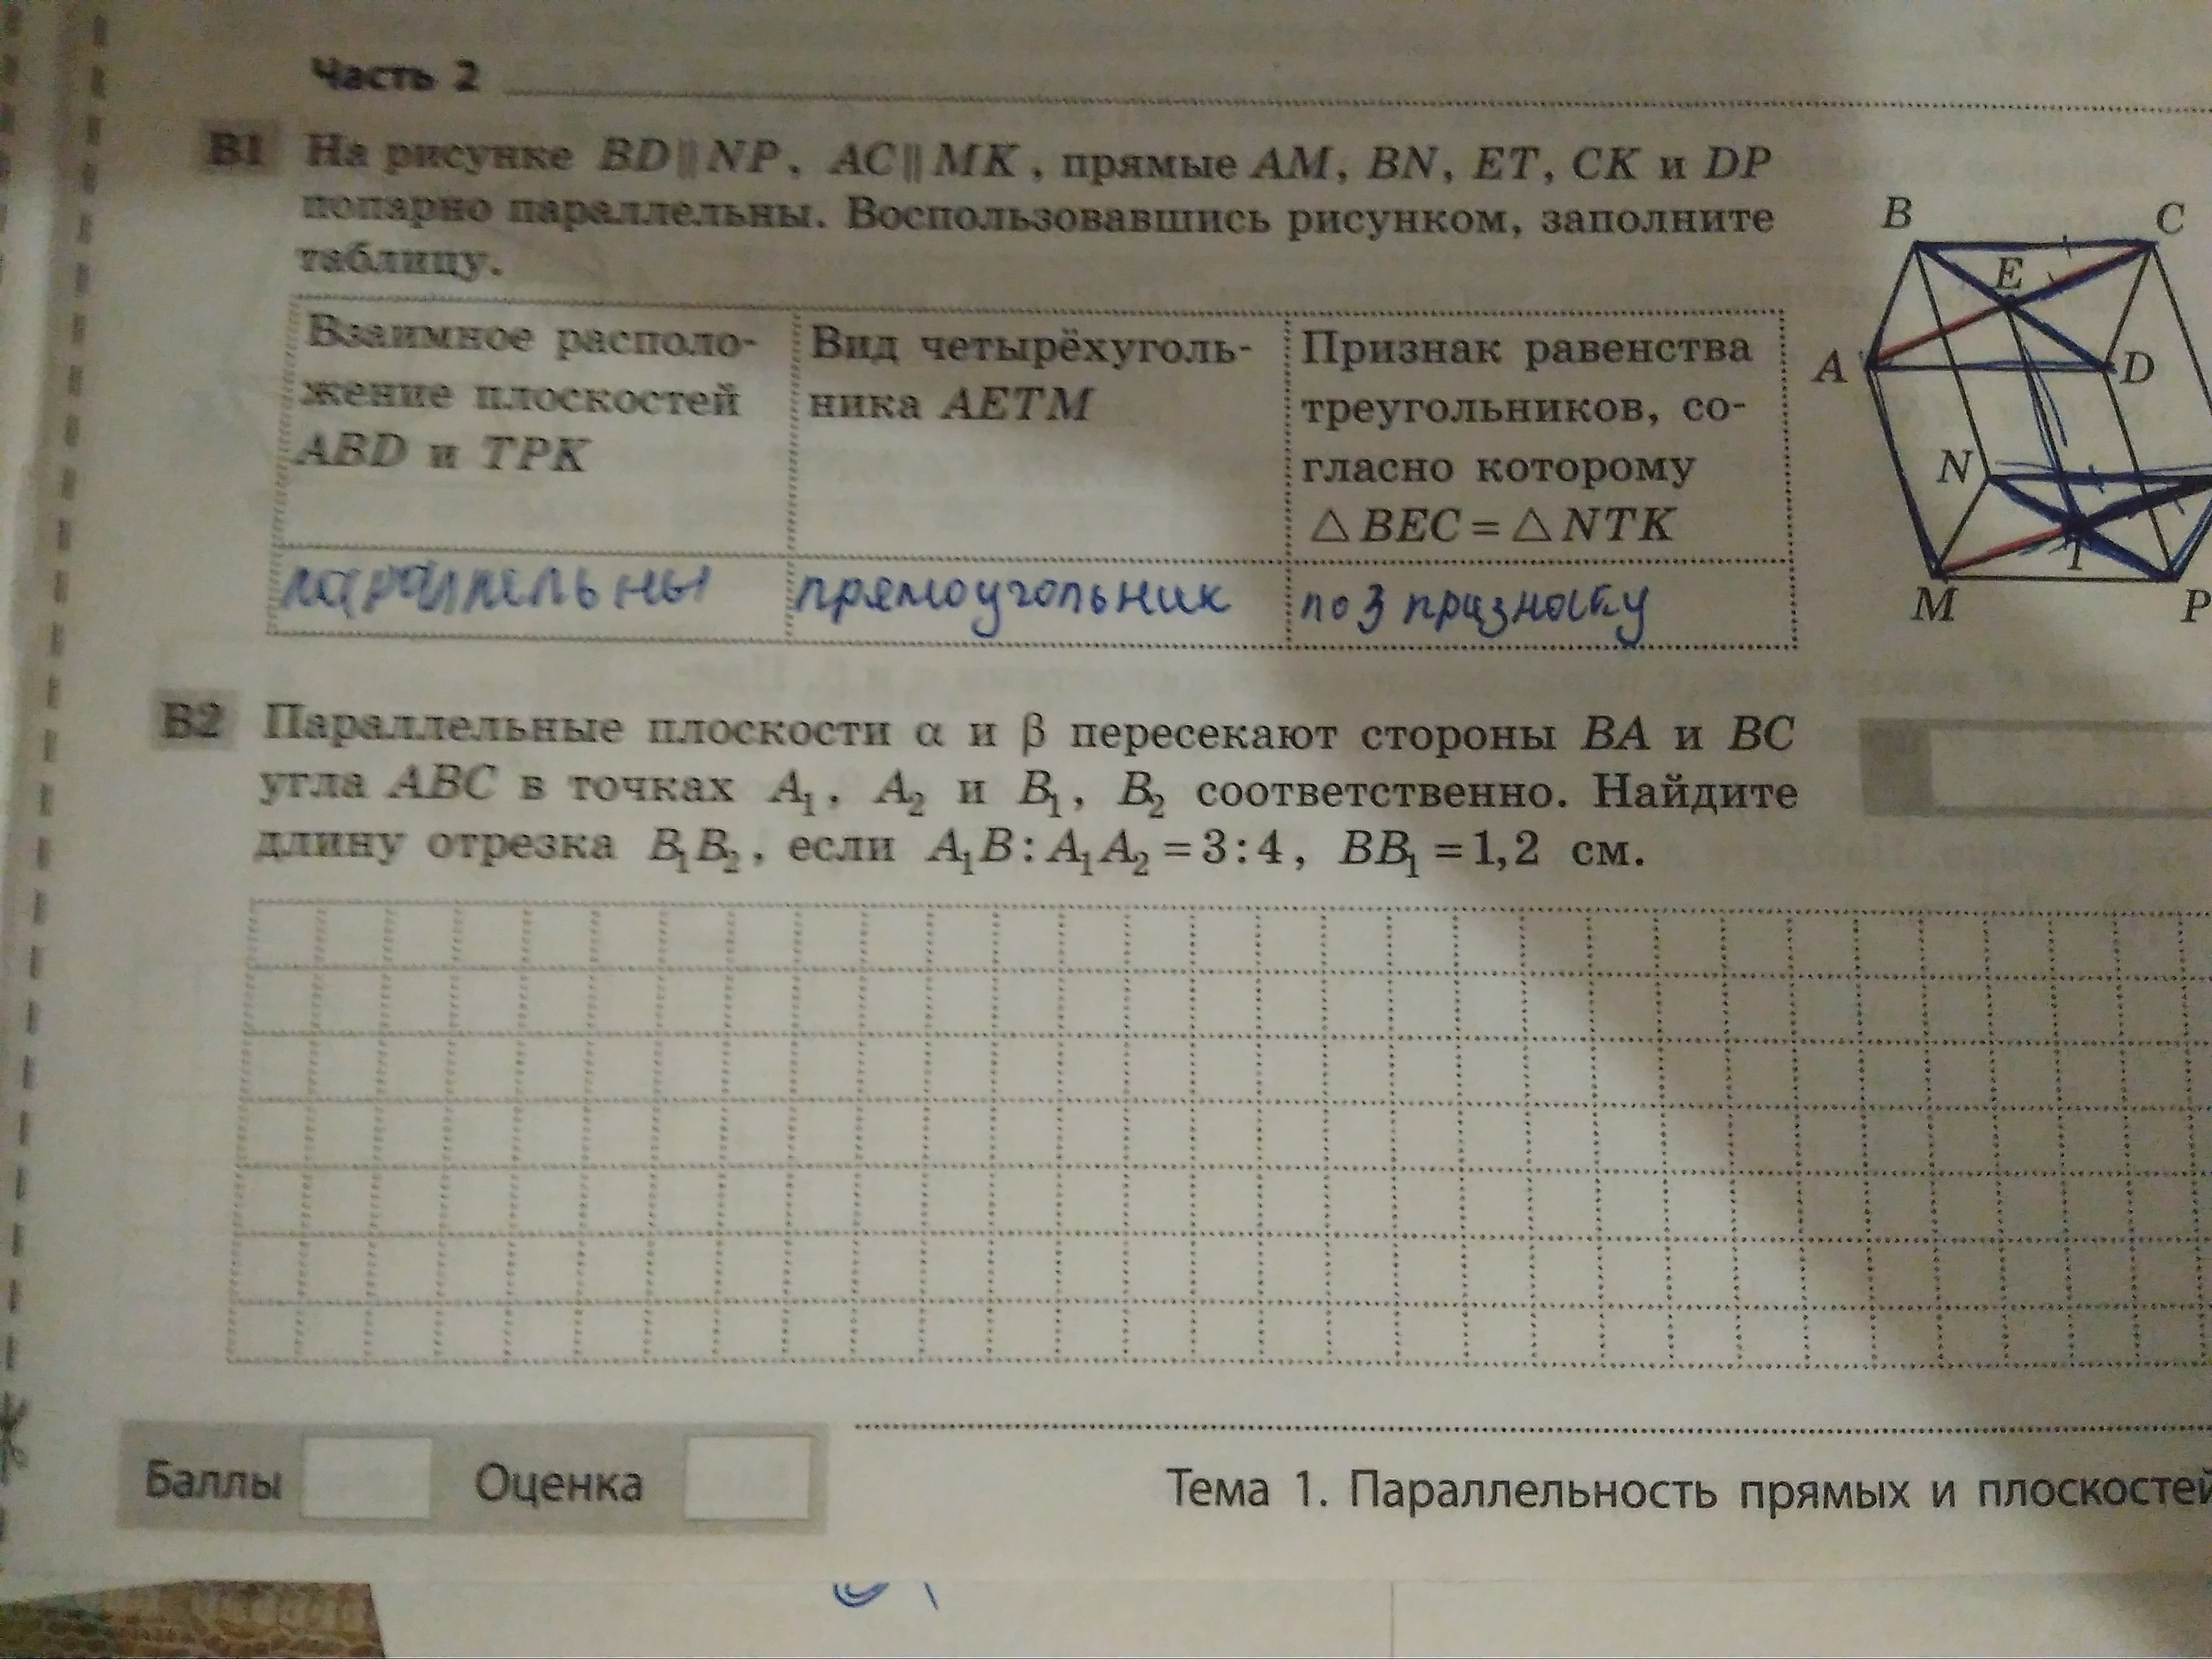 Часть 2
B1 На рисунке BD || NP, AC || MK, прямые AM, BN, ET, CK и DP
попарно параллельны. Воспользовавшись рисунком, заполните
таблицу.
Взаимное располо-
жение плоскостей
ABD и TPK
Вид четырёхуголь-
ника AETM
Признак равенства
треугольников, со-
гласно которому
△BEC = △NTK
параллельны
прямоугольник
по 3 признаку
B
C
E
A
D
N
T
M
P
B2 Параллельные плоскости α и β пересекают стороны BA и BC
угла ABC в точках A₁, A₂ и B₁, B₂ соответственно. Найдите
длину отрезка B₁B₂, если A₁B : A₁A₂ = 3 : 4, BB₁ = 1,2 см.
Баллы Оценка
Тема 1. Параллельность прямых и плоскостей